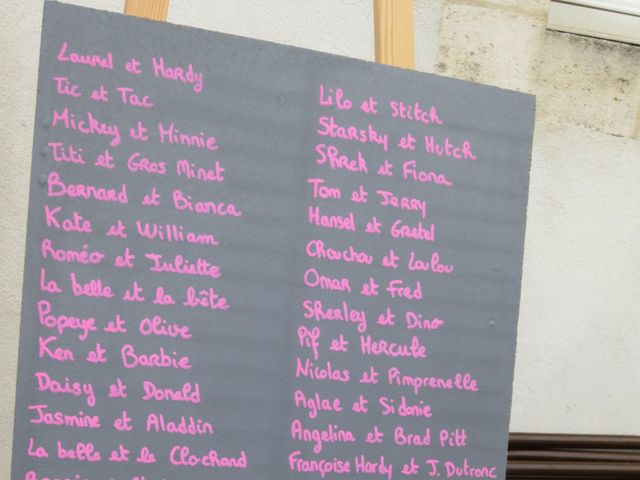 Laurel et Hardy
Tic et Tac
Mickey et Minnie
Titi et Gros Minet
Bernard et Bianca
Kate et William
Roméo et Juliette
La belle et la bête
Popeye et Olive
Ken et Barbie
Daisy et Donald
Jasmine et Aladdin
La belle et le Clochard
Lilo et Stitch
Starsky et Hutch
Shrek et Fiona
Tom et Jerry
Hansel et Gretel
Chouchou et Loulou
Omar et Fred
Sherley et Dino
Pif et Hercule
Nicolas et Pimprenelle
Aglae et Sidonie
Angelina et Brad Pitt
Françoise Hardy et J. Dutronc